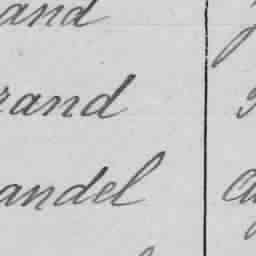 and
rand
andel